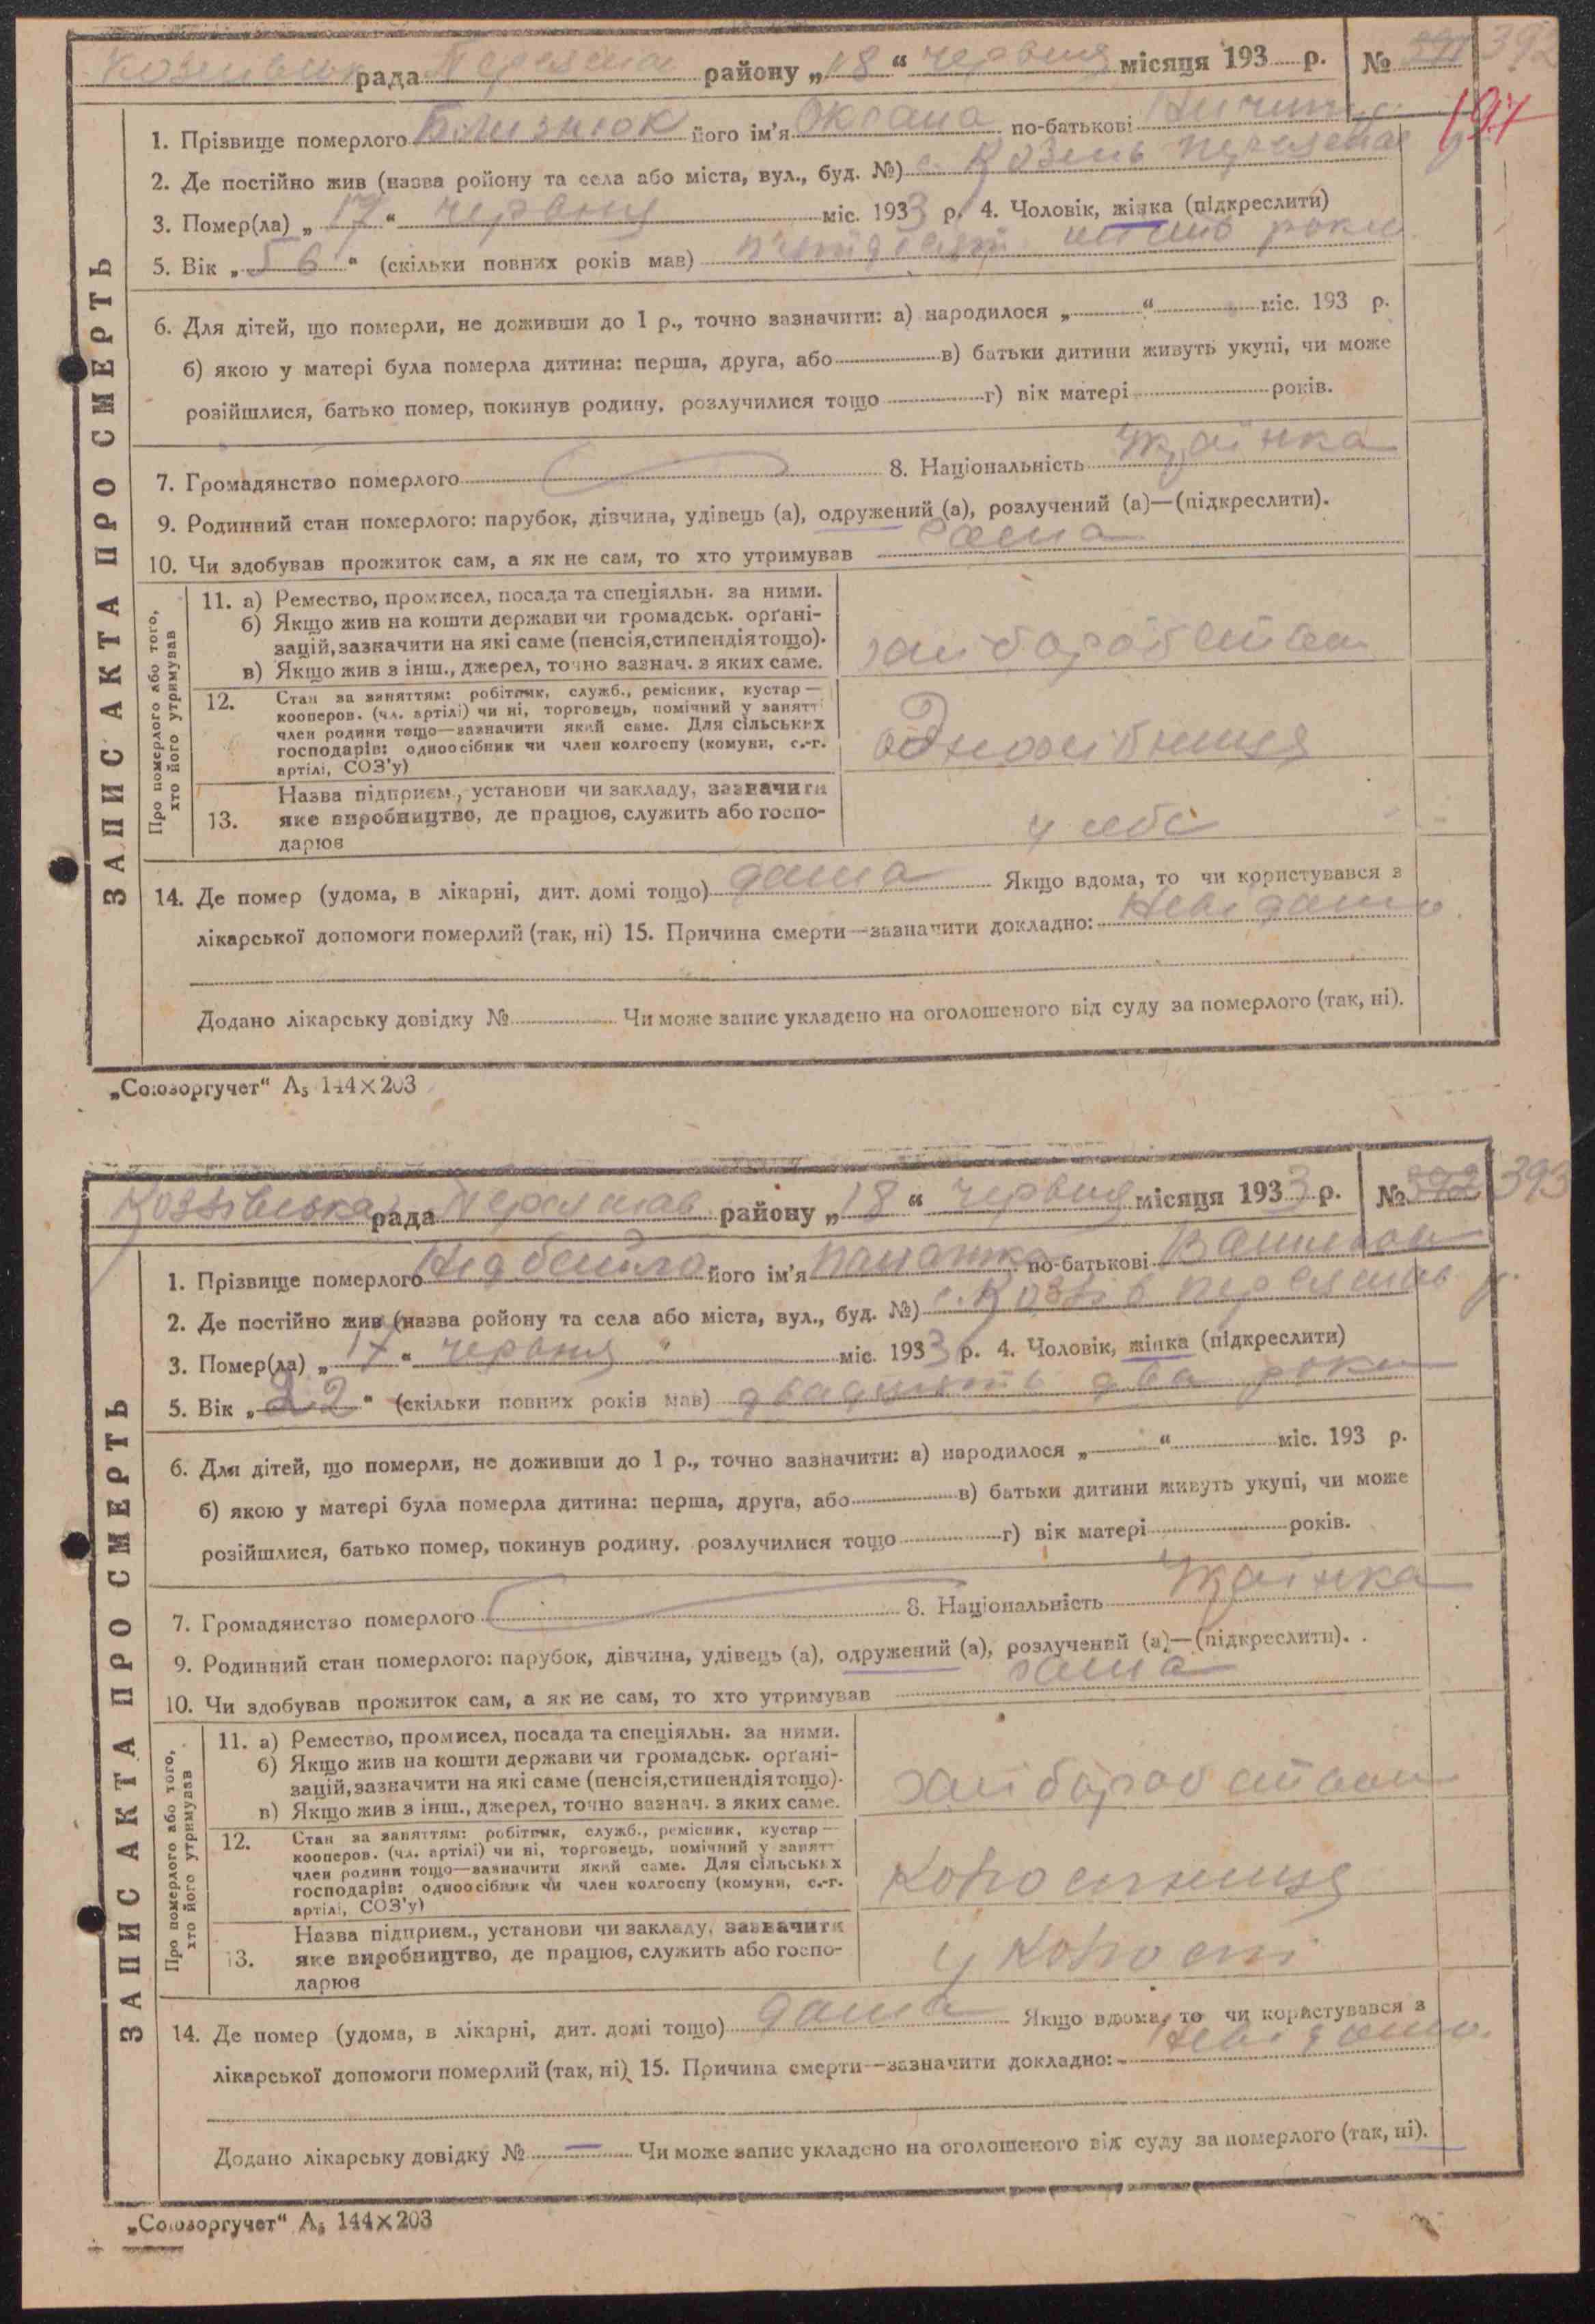 рада району „18“ червня місяця 193 р. № 391 392
194
1. Прізвище померлого Близнюк його ім'я Оксана по-батькові
2. Де постійно жив (назва ройону та села або міста, вул., буд. №) с.
3. Помер(ла) „17“ червня міс. 1933 р. 4. Чоловік, жінка (підкреслити)
5. Вік „56“ (скільки повних років мав) п'ятдесят шість роки
6. Для дітей, що померли, не доживши до 1 р., точно зазначити: а) народилося „ “ міс. 193 р.
б) якою у матері була померла дитина: перша, друга, або в) батьки дитини живуть укупі, чи може
розійшлися, батько помер, покинув родину, розлучилися тощо г) вік матері років.
7. Громадянство померлого 8. Національність Українка
9. Родинний стан померлого: парубок, дівчина, удівець (а), одружений (а), розлучений (а)—(підкреслити).
10. Чи здобував прожиток сам, а як не сам, то хто утримував сама
ЗАПИС АКТА ПРО СМЕРТЬ
Про померлого або того, хто його утримував
11. а) Ремество, промисел, посада та спеціяльн. за ними.
б) Якщо жив на кошти держави чи громадськ. орґані-
зацій, зазначити на які саме (пенсія, стипендія тощо).
в) Якщо жив з інш., джерел, точно зазнач. з яких саме.
12. Стан за заняттям: робітник, служб., ремісник, кустар—
кооперов. (чл. артілі) чи ні, торговець, помічний у занятт
член родини тощо—зазначити який саме. Для сільських
господарів: одноосібник чи член колгоспу (комуни, с.-г.
артілі, СОЗ'у)
одноосібниця
13. Назва підприєм., установи чи закладу, зазначити
яке виробництво, де працює, служить або госпо-
дарює
у себе
14. Де помер (удома, в лікарні, дит. домі тощо) дома Якщо вдома, то чи користувався з
лікарської допомоги померлий (так, ні) 15. Причина смерти—зазначити докладно: Невідомо
Додано лікарську довідку № Чи може запис укладено на оголошеного від суду за померлого (так, ні).
„Союзоргучет“ А5 144×203
рада району „18“ червня місяця 1933 р. № 392 393
1. Прізвище померлого його ім'я по-батькові
2. Де постійно жив (назва ройону та села або міста, вул., буд. №) с.
3. Помер(ла) „17“ червня міс. 1933 р. 4. Чоловік, жінка (підкреслити)
5. Вік „22“ (скільки повних років мав) двадцять два роки
6. Для дітей, що померли, не доживши до 1 р., точно зазначити: а) народилося „ “ міс. 193 р.
б) якою у матері була померла дитина: перша, друга, або в) батьки дитини живуть укупі, чи може
розійшлися, батько помер, покинув родину, розлучилися тощо г) вік матері років.
7. Громадянство померлого 8. Національність Українка
9. Родинний стан померлого: парубок, дівчина, удівець (а), одружений (а), розлучений (а)—(підкреслити).
10. Чи здобував прожиток сам, а як не сам, то хто утримував сама
ЗАПИС АКТА ПРО СМЕРТЬ
Про померлого або того, хто його утримував
11. а) Ремество, промисел, посада та спеціяльн. за ними.
б) Якщо жив на кошти держави чи громадськ. орґані-
зацій, зазначити на які саме (пенсія, стипендія тощо).
в) Якщо жив з інш., джерел, точно зазнач. з яких саме.
12. Стан за заняттям: робітник, служб., ремісник, кустар—
кооперов. (чл. артілі) чи ні, торговець, помічний у занятт
член родини тощо—зазначити який саме. Для сільських
господарів: одноосібник чи член колгоспу (комуни, с.-г.
артілі, СОЗ'у)
13. Назва підприєм., установи чи закладу, зазначити
яке виробництво, де працює, служить або госпо-
дарює
14. Де помер (удома, в лікарні, дит. домі тощо) дома Якщо вдома, то чи користувався з
лікарської допомоги померлий (так, ні) 15. Причина смерти—зазначити докладно: Невідомо
Додано лікарську довідку № — Чи може запис укладено на оголошеного від суду за померлого (так, ні).
„Союзоргучет“ А5 144×203